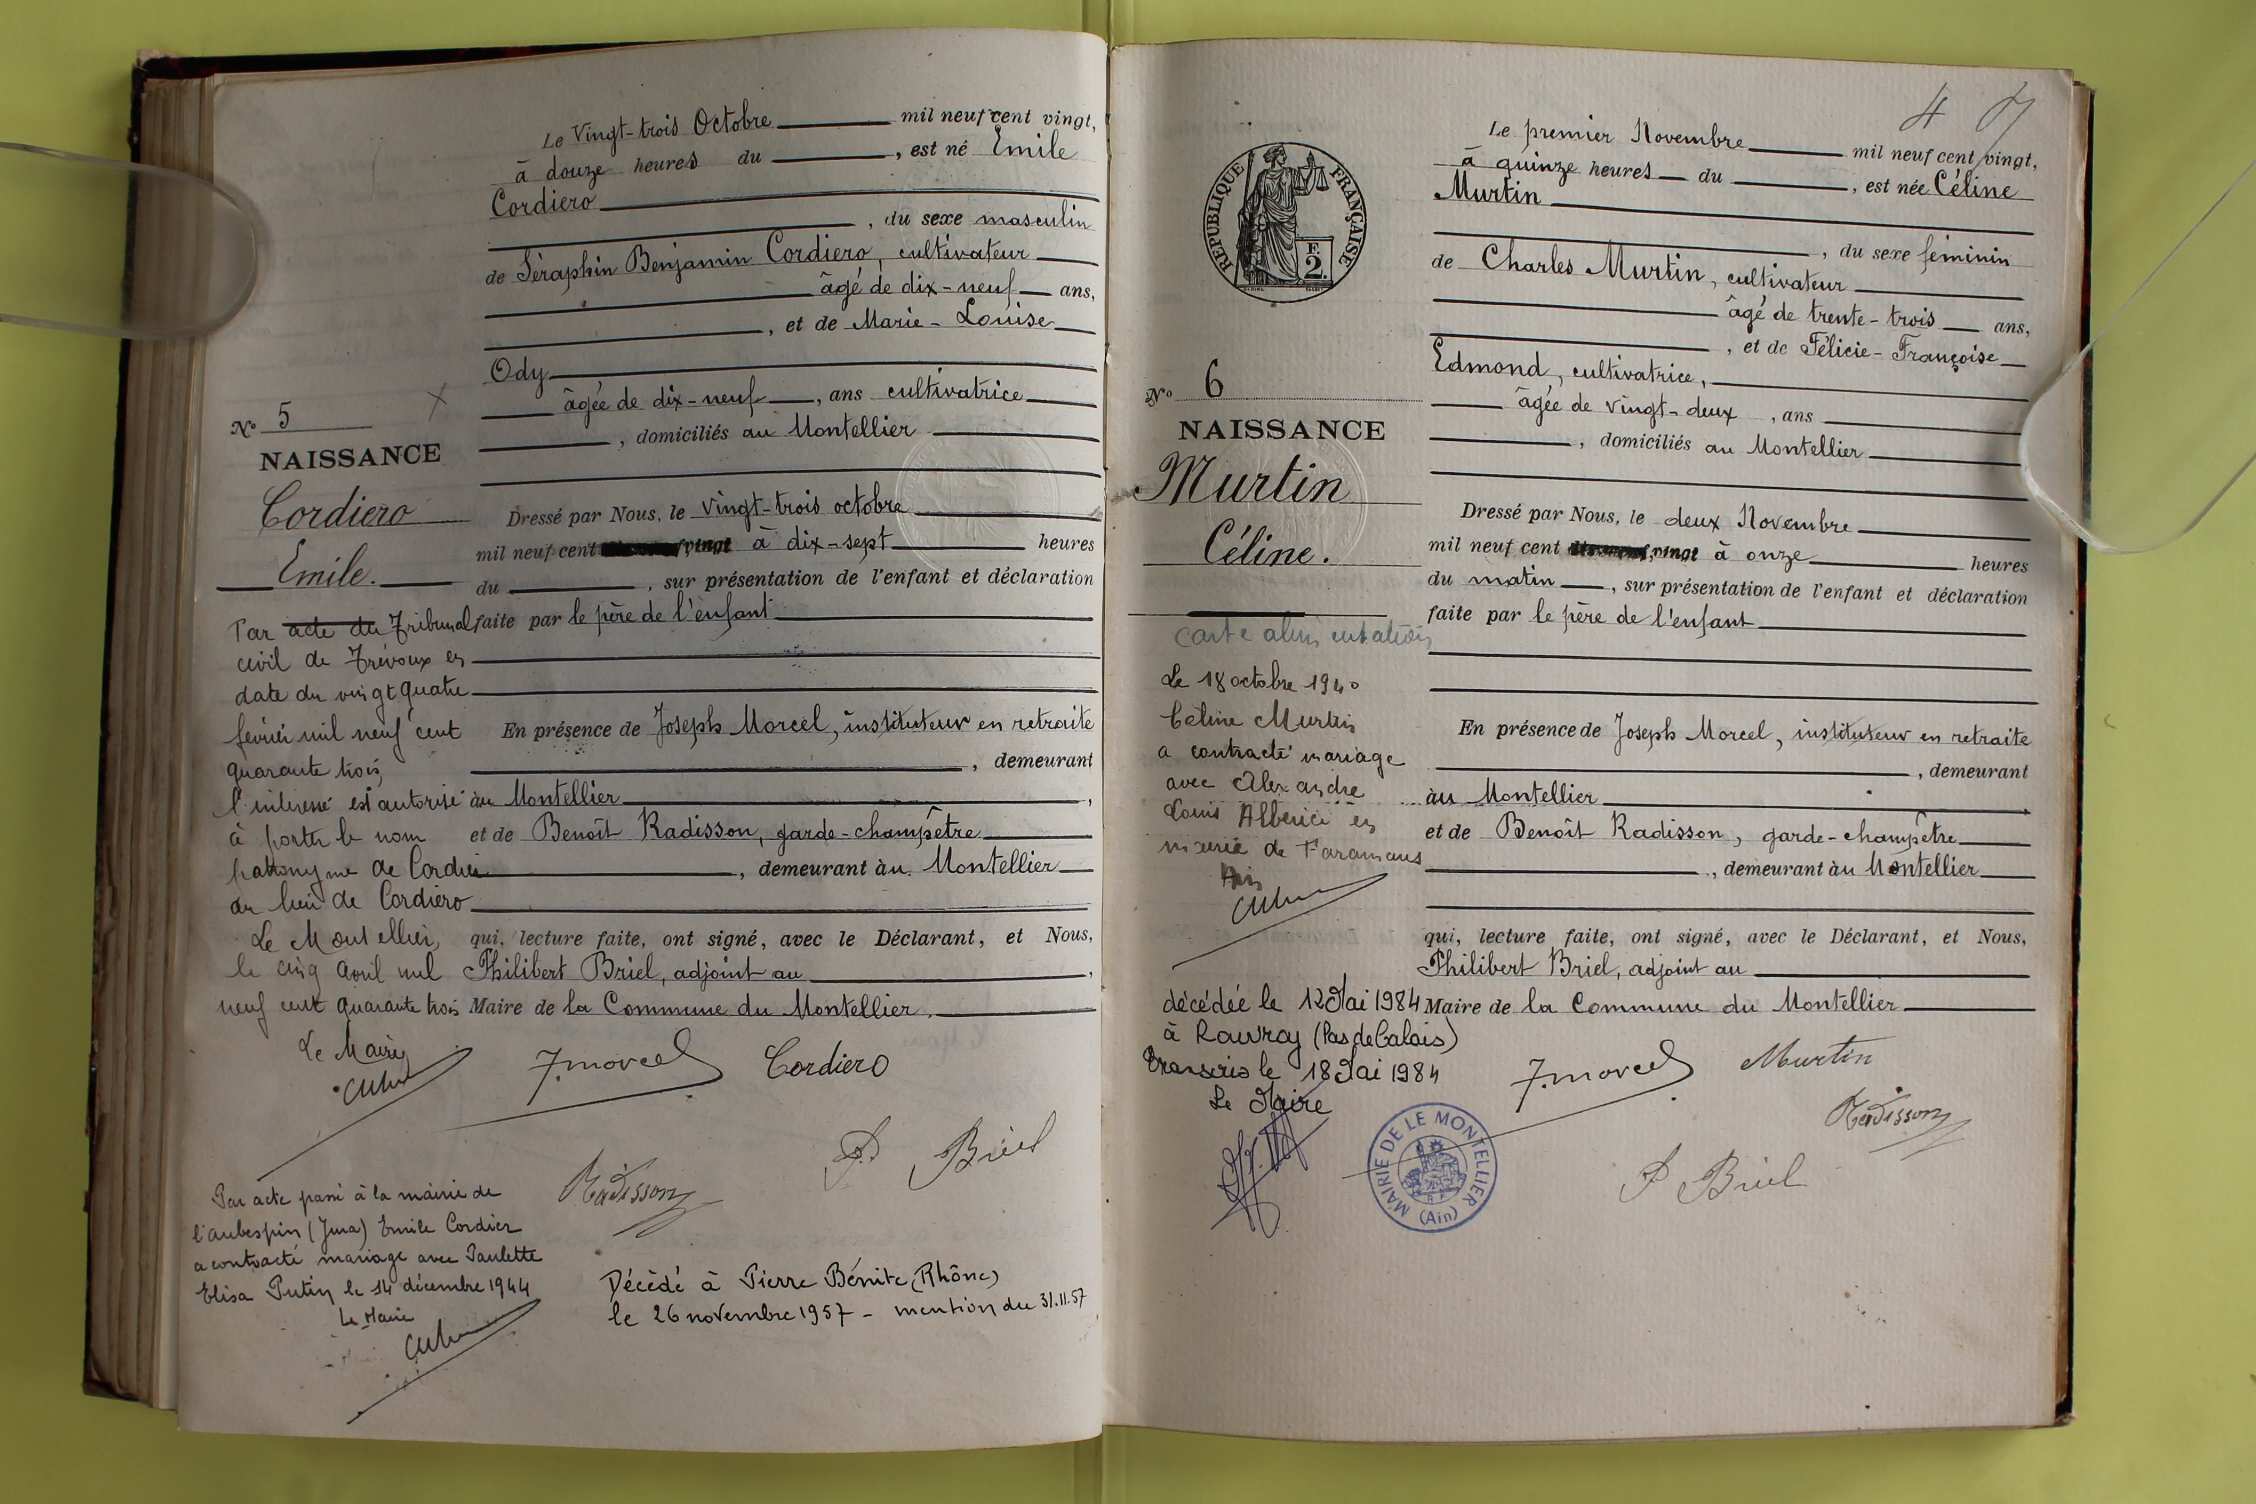 Le Vingt-trois Octobre mil neuf cent vingt,
à douze heures du , est né Emile
Cordiero
, du sexe masculin
de Séraphin Benjamin Cordiero, cultivateur
âgé de dix-neuf ans,
, et de Marie-Louise
Ody
âgée de dix-neuf , ans cultivatrice
, domiciliés au Montellier
No 5
NAISSANCE
Cordiero
Emile.
Dressé par Nous, le vingt-trois octobre
mil neuf cent vingt à dix-sept heures
du , sur présentation de l'enfant et déclaration
faite par le père de l'enfant
En présence de Joseph Morcel, instituteur en retraite
, demeurant
àu Montellier ,
et de Benoît Radisson, garde-champêtre
, demeurant àu Montellier
qui, lecture faite, ont signé, avec le Déclarant, et Nous,
Philibert Briel, adjoint au ,
Maire de la Commune du Montellier.
J. Morcel Cordiero
Radisson P Briel
Par acte du Tribunal
civil de Trévoux en
date du vingt quatre
février mil neuf cent
quarante trois,
l'intéressé est autorisé
à porter le nom
patronyme de Cordier
au lieu de Cordiero
Le Montellier,
le cinq avril mil
neuf cent quarante trois
Le Maire
Par acte passé à la mairie de
l'aubespin (Jura) Emile Cordier
a contracté mariage avec Paulette
Elisa Putin le 14 décembre 1944
Le Maire
Décédé à Pierre Bénite (Rhône)
le 26 novembre 1957 - mention du 31.11.57
4
REPUBLIQUE FRANÇAISE
F.
2.
Le premier Novembre mil neuf cent vingt,
à quinze heures du , est née Céline
Murtin
, du sexe féminin
de Charles Murtin, cultivateur
âgé de trente-trois ans,
, et de Félicie-Françoise
Edmond, cultivatrice,
âgée de vingt-deux , ans
, domiciliés au Montellier
No 6
NAISSANCE
Murtin
Céline.
Dressé par Nous, le deux Novembre
mil neuf cent vingt à onze heures
du matin , sur présentation de l'enfant et déclaration
faite par le père de l'enfant
En présence de Joseph Morcel, instituteur en retraite
, demeurant
àu Montellier
et de Benoît Radisson, garde-champêtre
, demeurant àu Montellier
qui, lecture faite, ont signé, avec le Déclarant, et Nous,
Philibert Briel, adjoint au
Maire de la Commune du Montellier
J. Morcel Murtin
Radisson
P Briel
carte alimentation
Le 18 octobre 1940
Céline Murtin
a contracté mariage
avec Alexandre
Louis Alberici en
mairie de Faramans
Ain
décédée le 12 Mai 1984
à Rouvroy (Pas de Calais)
Transcris le 18 Mai 1984
Le Maire
MAIRIE DE LE MONTELLIER
(Ain)